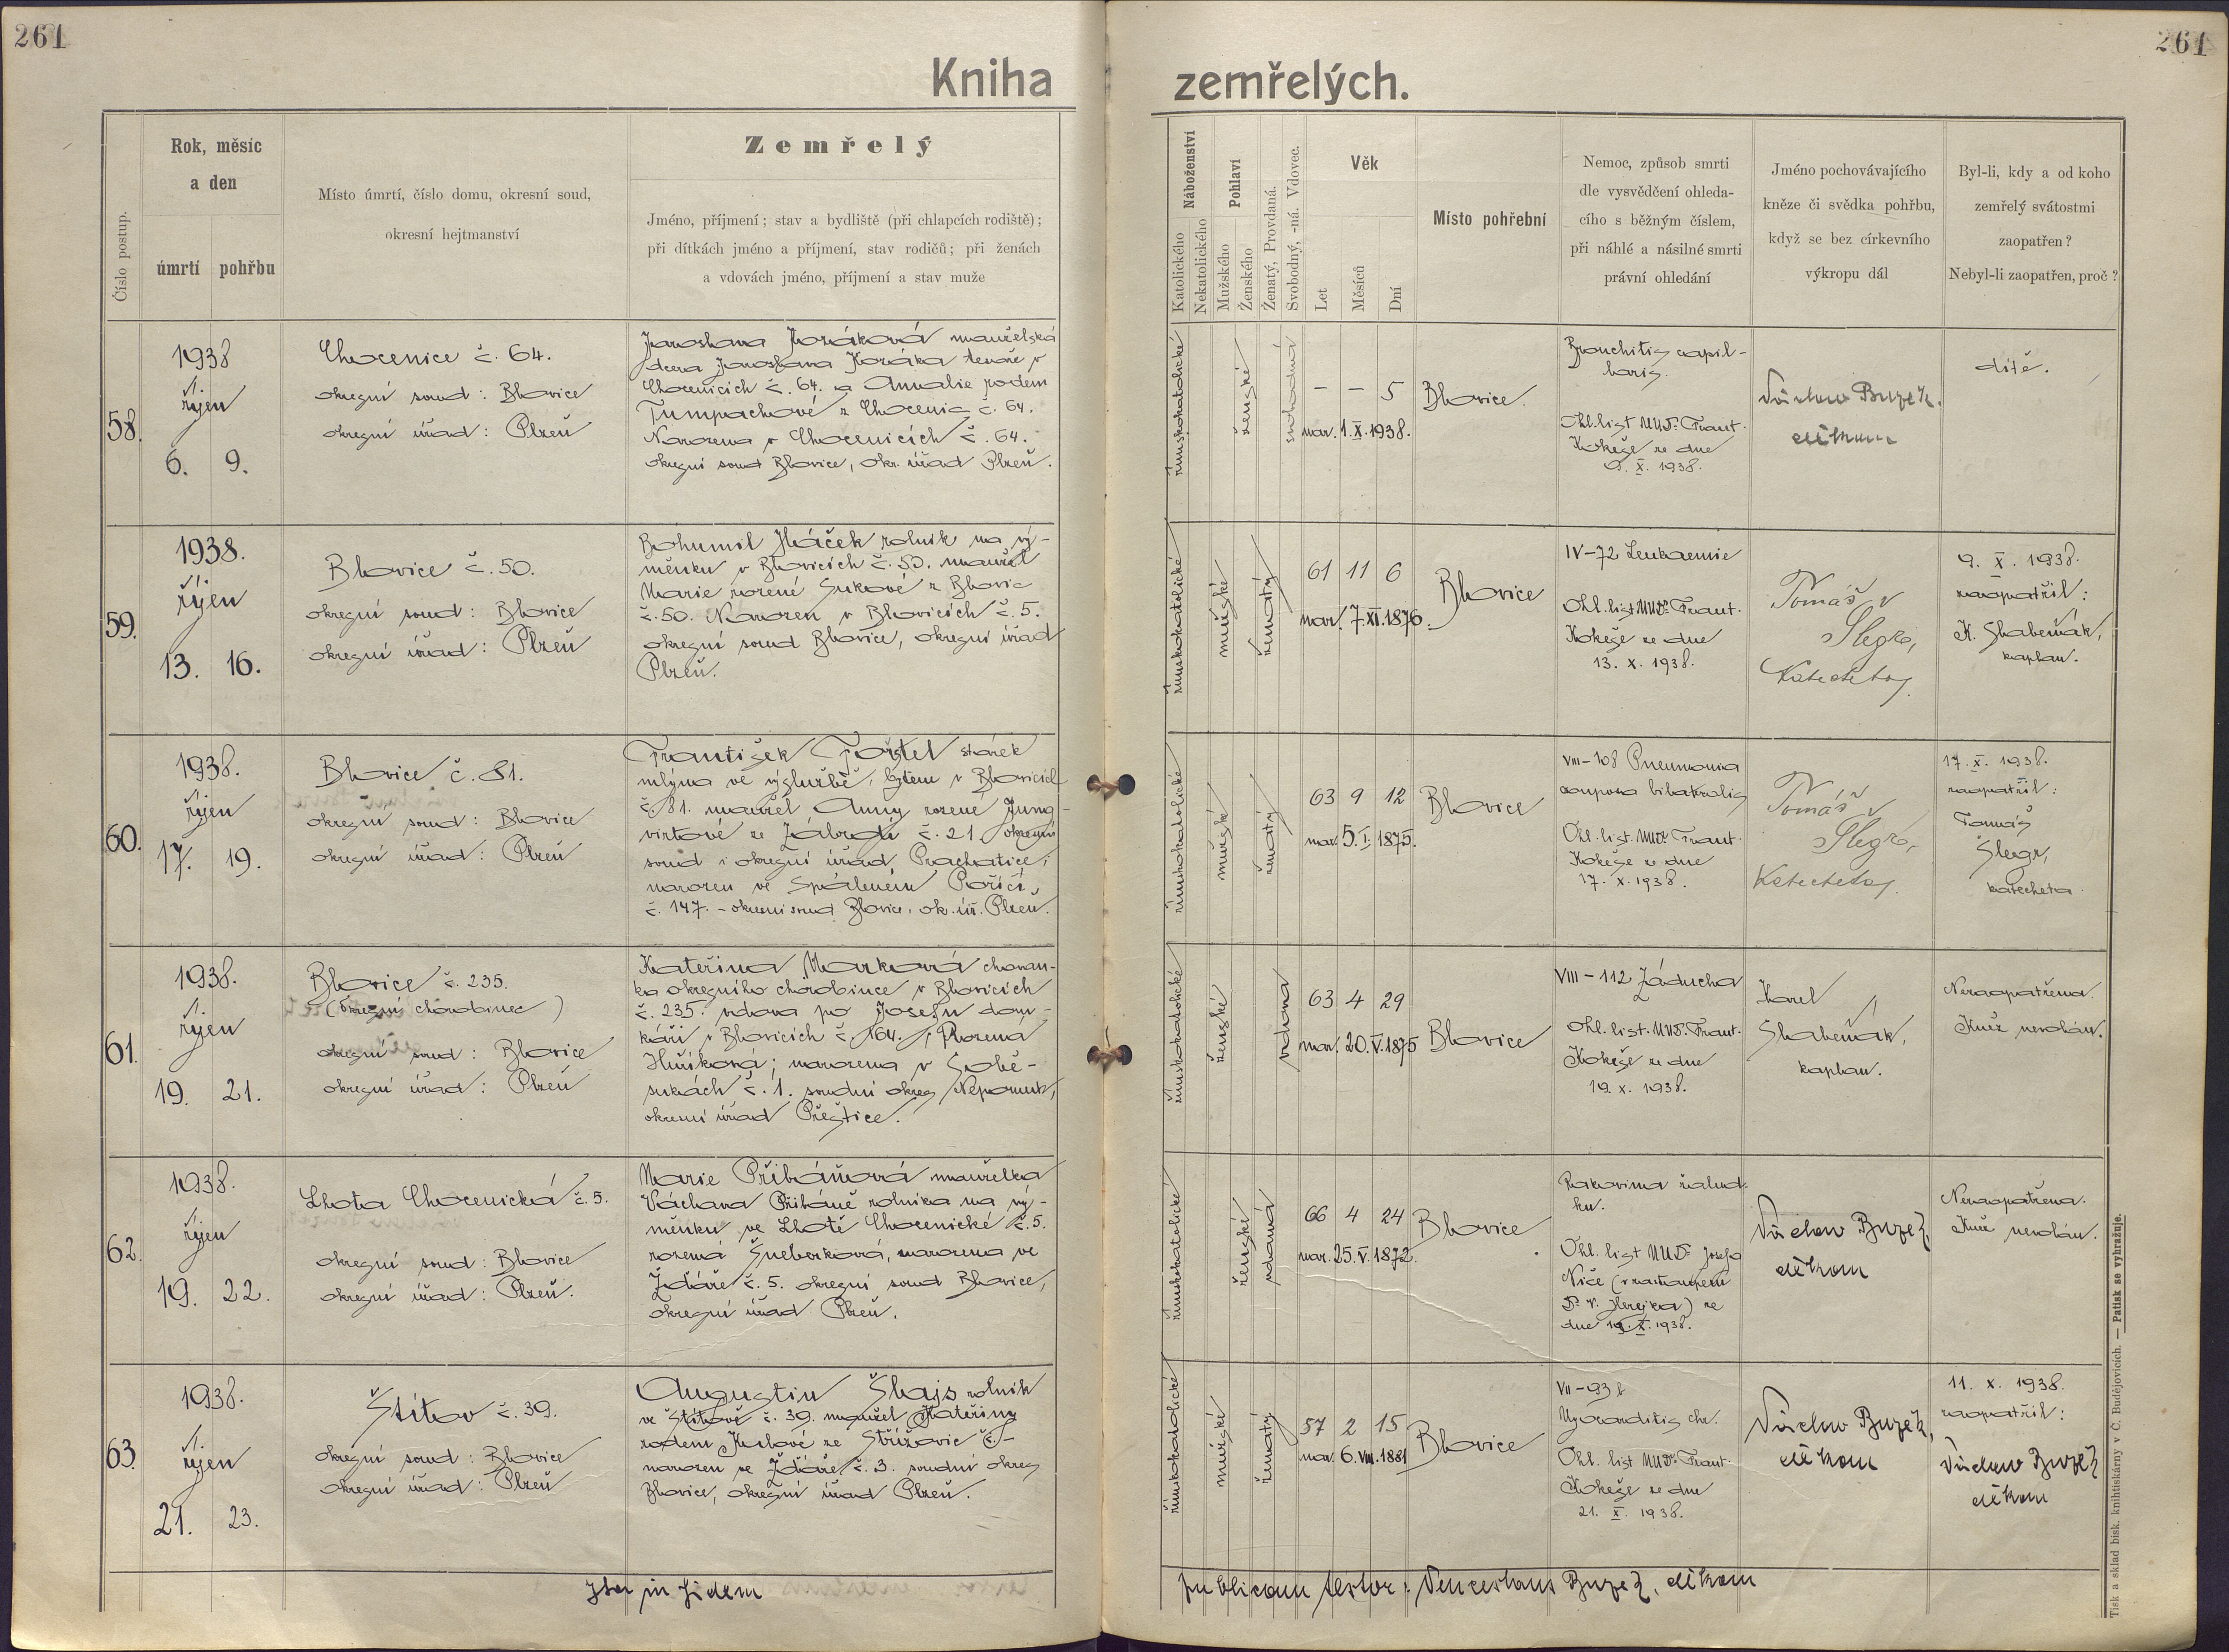 261
261
Kniha zemřelých.
Číslo postup.
Rok, měsíc
a den
úmrtí
pohřbu
Místo úmrtí, číslo domu, okresní soud,
okresní hejtmanství
Zemřelý
Jméno, příjmení; stav a bydliště (při chlapcích rodiště);
při dítkách jméno a příjmení, stav rodičů; při ženách
a vdovách jméno, příjmení a stav muže
Náboženství
Katolického
Nekatolického
Pohlaví
Mužského
Ženského
Ženatý, Provdaná.
Svobodný, -ná. Vdovec.
Věk
Let
Měsíců
Dní
Místo pohřební
Nemoc, způsob smrti
dle vysvědčení ohleda-
cího s běžným číslem,
při náhlé a násilné smrti
právní ohledání
Jméno pochovávajícího
kněze či svědka pohřbu,
když se bez církevního
výkropu dál
Byl-li, kdy a od koho
zemřelý svátostmi
zaopatřen?
Nebyl-li zaopatřen, proč?
58.
1938
říjen
6. 9.
Chocenice č. 64.
okresní soud: Blovice
okresní úřad: Plzeň
Jaroslava Kozáková manželská
dcera Jaroslava Kozáka tesaře v
Chocenicích č. 64. a Amalie rodem
Tumpachové z Chocenic č. 64.
Narozena v Chocenicích č. 64.
okresní soud Blovice, okr. úřad Plzeň.
římskokatolické
ženské
svobodná
– – 5
nar. 1. X. 1938.
Blovice.
Bronchitis capil-
laris.
Ohl. list MUDr. Frant.
Kokeše ze dne
9. X. 1938.
Václav Buzek.
děkan
dítě.
59.
1938.
říjen
13. 16.
Blovice č. 50.
okresní soud: Blovice
okresní úřad: Plzeň
Bohumil Hláček rolník na vý-
měnku v Blovicích č. 50. manžel
Marie rozené Sukové z Blovic
č. 50. Narozen v Blovicích č. 5.
okresní soud Blovice, okresní úřad
Plzeň.
římskokatolické
mužské
ženatý
61 11 6
nar. 7. XI. 1876.
Blovice
IV–72 Leukaemie
Ohl. list MUDr. Frant.
Kokeše ze dne
13. X. 1938.
Tomáš
Šlegr,
Katecheta.
9. X. 1938.
zaopatřil:
K. Slabeňák,
kaplan.
60.
1938.
říjen
17. 19.
Blovice č. 81.
okresní soud: Blovice
okresní úřad: Plzeň
František stárek
mlýna ve výslužbě, bytem v Blovicích
č. 81. manžel Anny rozené Jung-
virtové ze č. 21. okresní
soud i okresní úřad Prachatice;
narozen ve Spáleném Poříčí,
č. 147. – okresní soud Blovice, ok. úř. Plzeň.
římskokatolické
mužské
ženatý
63 9 12
nar. 5. I. 1875.
Blovice
VIII–108 Pneumonia
Ohl. list. MUDr. Frant.
Kokeše ze dne
17. X. 1938.
Tomáš
Šlegr,
Katecheta.
17. X. 1938.
zaopatřil:
Tomáš
Šlegr,
katecheta.
61.
1938.
říjen
19. 21.
Blovice č. 235.
(Okresní chorobinec)
okresní soud: Blovice
okresní úřad: Plzeň
Kateřina Marková chovan-
ka okresního chorobince v Blovicích
č. 235. vdova po Josefu dom-
káři v Blovicích č. 164.; Rozená
narozena v Sobě-
sukách č. 1. soudní okres Nepomuk,
okresní úřad Přeštice.
římskokatolické
ženské
vdova
63 4 29
nar. 20. V. 1875
Blovice
VIII–112 Záducha
Ohl. list. MUDr. Frant.
Kokeše ze dne
19. X. 1938.
Karel
Slabeňák,
kaplan.
Nezaopatřena.
Kněz nevolán.
62.
1938.
říjen
19. 22.
Lhota Chocenická č. 5.
okresní soud: Blovice
okresní úřad: Plzeň.
Marie Přibáňová manželka
Václava Přibáně rolníka na vý-
měnku ve Lhotě Chocenické č. 5.
rozená Šneberková, narozena ve
Žďáře č. 5. okresní soud Blovice,
okresní úřad Plzeň.
římskokatolické
ženské
vdaná
66 4 24
nar. 25. V. 1872.
Blovice
Rakovina žalud-
ku.
Ohl. list MUDr. Josefa
(v zastoupení
Dr. V. ) ze
dne 19. X. 1938.
Václav Buzek,
děkan
Nezaopatřena.
Kněz nevolán.
63.
1938.
říjen
21. 23.
Štítov č. 39.
okresní soud: Blovice
okresní úřad: Plzeň
Augustin Šlajs rolník
ve Štítově č. 39. manžel Kateřiny
rodem ze Střížovic č. –
narozen ve Žďáře č. 3. soudní okres
Blovice, okresní úřad Plzeň.
římskokatolické
mužské
ženatý
57 2 15
nar. 6. VIII. 1881
Blovice
VII–93
Myocarditis chr.
Ohl. list MUDr. Frant.
Kokeše ze dne
21. X. 1938.
Václav Buzek,
děkan
11. X. 1938.
zaopatřil:
Václav Buzek
děkan
Ita in fidem
publicam testor: Venceslaus Buzek, děkan
Tisk a sklad bisk. knihtiskárny v Č. Budějovicích. — Patisk se vyhražuje.